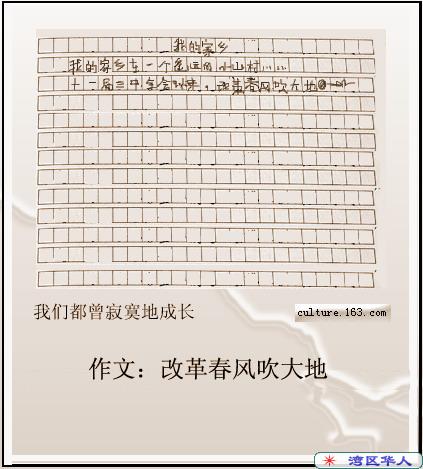 我的家乡
我的家乡在一个遥远的小山村……
十一届三中全会以来，改革春风吹大地
我们都曾寂寞地成长
culture.163.com
作文：改革春风吹大地
湾区华人